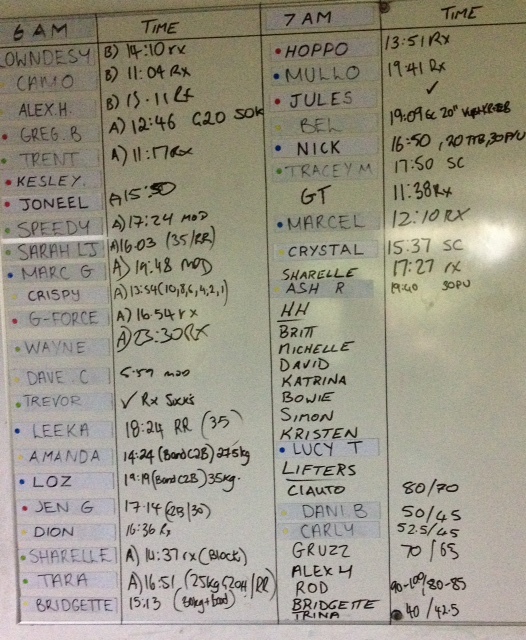 6 AM TIME
LOWNDESY B) 14:10 rx
CAMO B) 11:04 Rx
ALEX.H. B) 15.11 Rx
GREG.B A) 12:46 G20 50K
TRENT A) 11:17 Rx
KESLEY.
JONEEL A) 15:50
SPEEDY A) 17:24 MOD
SARAH LJ A) 16.03 (35/RR)
MARC G A) 19:48 MOD
CRISPY A) 13:54 (10,8,6,4,2,1)
G-FORCE A) 16:54 rx
WAYNE A) 23:30 RX
DAVE.C 5:57 mod
TREVOR ✓ Rx Sucks
LEEKA 18:24 RR (35)
AMANDA 14:24 (Band C2B) 27.5kg
LOZ 19:19 (Band C2B) 35kg.
JEN G 17:14 (2B/30)
DION 16:36 Rx
SHARELLE A) 14:37 rx (Block)
TARA A) 16:51 (25kg G2OH/RR)
BRIDGETTE 15:13 (30kg + band)
7 AM TIME
HOPPO 13:51 Rx
MULLO 19:41 Rx
JULES ✓
BEL 19:09 SC 20"
NICK 16:50, 20 TTB, 30 P/U
TRACEY M 17:50 SC
GT 11:38 Rx
MARCEL 12:10 RX
CRYSTAL 15:37 SC
SHARELLE 17:27 rx
ASH R 19:40 30PU
HH
BRITT
MICHELLE
DAVID
KATRINA
BOWIE
SIMON
KRISTEN
LUCY T
LIFTERS
CIAUTO 80/70
DANI B 50/45
CARLY 52.5/45
GRUZZ 70/65
ALEX H
ROD 90-100/80-85
BRIDGETTE 40/42.5
TRINA